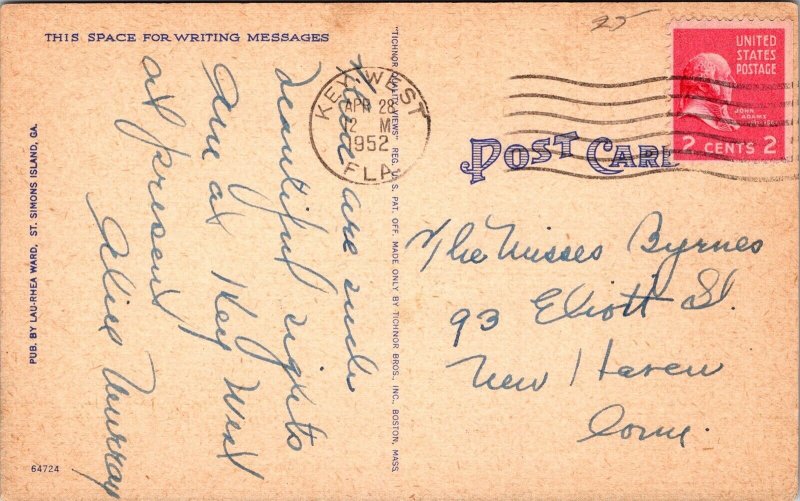 THIS SPACE FOR WRITING MESSAGES
are such
beautiful sights
Am at Key West
at present
Alice Murray
PUB. BY LAU-RHEA WARD, ST. SIMONS ISLAND, GA.
64724
"TICHNOR QUALITY VIEWS" REG. U. S. PAT. OFF. MADE ONLY BY TICHNOR BROS., INC., BOSTON, MASS.
KEY WEST
APR 28
2 M
1952
FLA.
25
UNITED
STATES
POSTAGE
JOHN
ADAMS
2 CENTS 2
POST CARD
The Misses Byrnes
93 Elliott St.
New Haven
Conn.